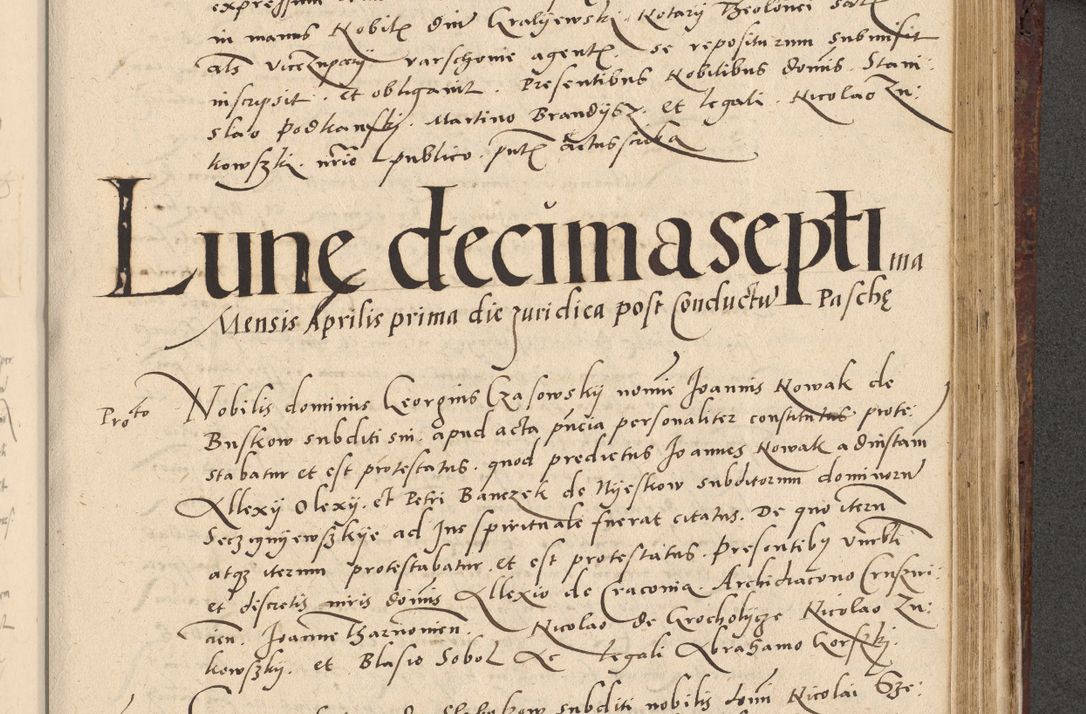 in manus Nobil dni Gralyewski Notarij Theolonei
als vicezuparij varschovie agent se repositurum submisit
inscripsit. Et obligavit. Presentibus Nobilibus domis. Stani:
slao Podkanskj. Martino Brandijsz. Et legali. Nicolao Zu:
kowszkj. nrio publico. putt actus scriba
Lunę decima septima
Mensis Aprilis prima die juridica post Conductu Paschę
Proto
Nobilis dominus Georgius Czasowskij nomie Joannis Nowak de
Buskow subditi sui. apud acta pncia personaliter constitutus prote:
stabatur et est protestatus. quod predictus Joannes Nowak ad instam
Allexij Olexij. et Petri Banczek de Nijeskow subditorum dominoru
Seczigniewszkije ad Jus spirituale fuerat citatus. De quo iteru
atq iterum protestabatur. et est protestatus. Presentiby vnrbli
et discretis viris domis Allexio de Cracovia Archidiacono Cruszvi:
cien. Joanne Tharnovien. Nicolao de Grocholijcze Nicolao Zu:
kowszkij. et Blasio Sobol Ac legali Abrahamo Gorszkj.
subditi nobilis domi Nicolai